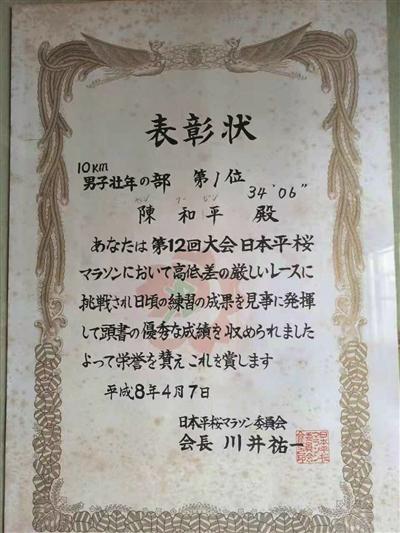 表彰状
10km
男子壮年の部 第1位
34'06"
陳 和平 殿
あなたは第12回大会日本平桜
マラソンにおいて高低差の厳しいレースに
挑戦され日頃の練習の成果を見事に発揮
して頭書の優秀な成績を収められました
よって栄誉を賛えこれを賞します
平成8年4月7日
日本平桜マラソン委員会
会長 川井祐一